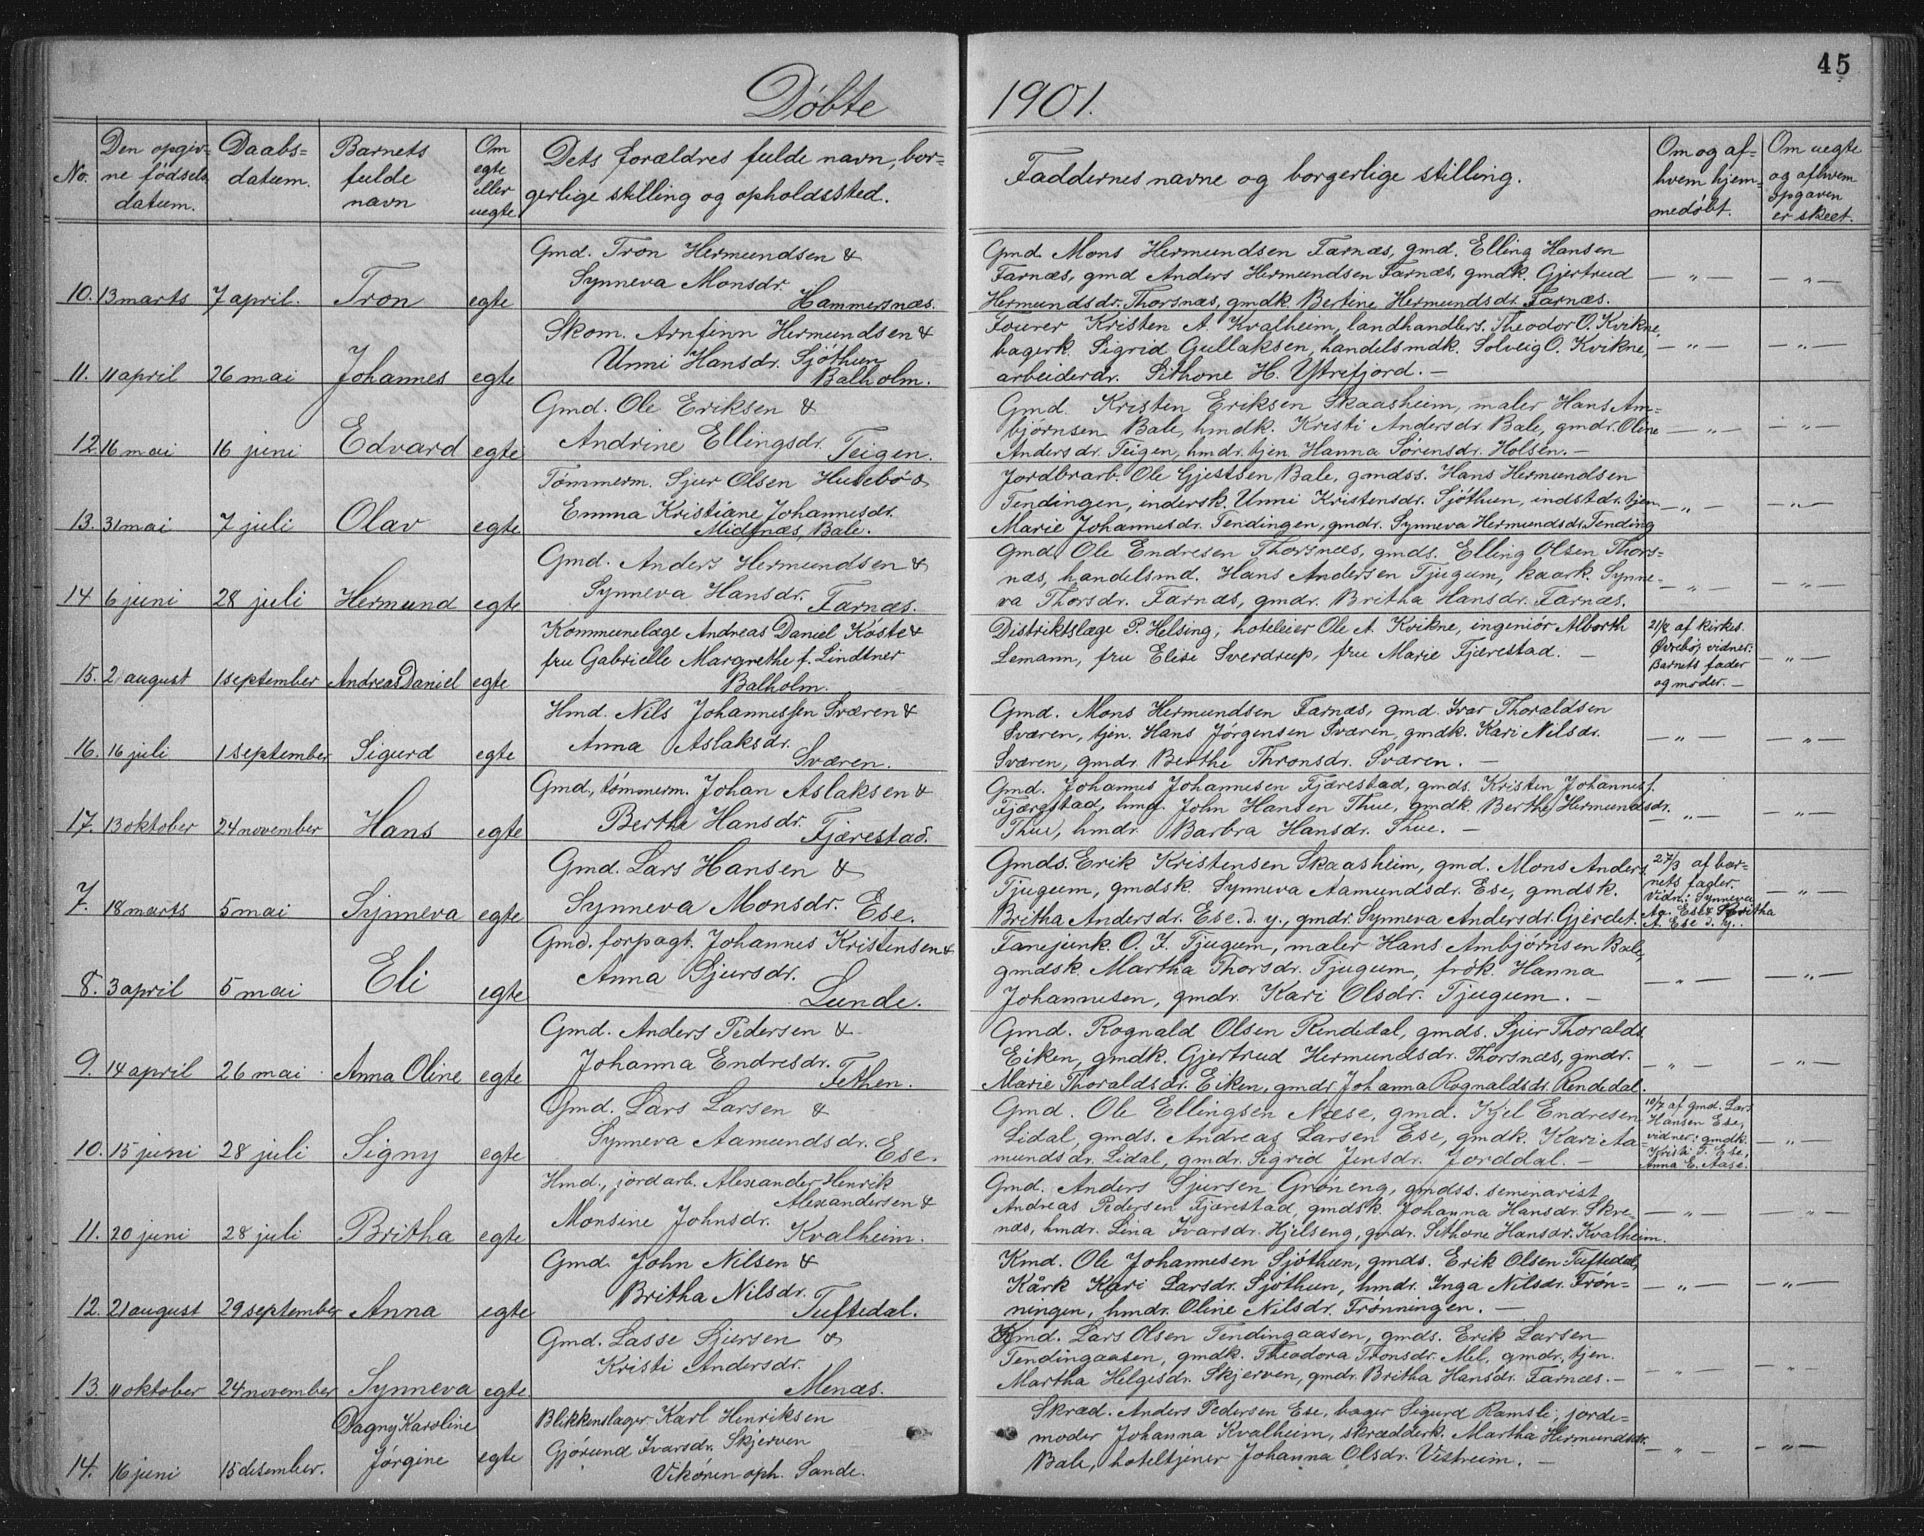 45
Döbte 1901.
No. Den opgiv-ne födsels datum. Daabs-datum. Barnets fulde navn Om egte eller uegte. Dets forældres fulde navn, bor-gerlige stilling og opholdssted. Faddernes navne og borgerlige stilling. Om og af-hvem hjem-medöbt. Om uegte og afhvem opgaven er skeet.
Gmd. Tron Hermundsen &
Synneva Monsdr.
10. 13 marts 7 april. Tron egte Hammersnæs.
Gmd. Mons Hermundsen Farnæs, gmd. Elling Hansen
Farnæs, gmd Anders Hermundsen Farnæs, gmdk. Gjertrud — „ — — „ —
Hermundsdr. Thorsnæs, gmdk Bertine Hermundsdr. Farnæs.
Skom. Arnfinn Hermundsen &
Unni Hansdr. Sjöthun
11. 11 april 26 mai Johannes egte Balholm.
Fourer Kristen A. Kvalheim, landhandlers. Theodor O. Kvikne,
bagerk. Sigrid Gullaksen, handelsmdk. Solveig O. Kvikne, — „ — — „ —
arbeiderdr. Sithone H. Ytrefjord. —
Gmd. Ole Eriksen &
12. 16 mai 16 juni Edvard egte Andrine Ellingsdr. Teigen.
Gmd. Kristen Eriksen Skaasheim, maler Hans Am-
björnsen Bale, hmdk. Kristi Andersdr. Bale, gmdr. Oline — „ — — „ —
Andersdr. Teigen, hmdr. tjen. Hanna Sörensdr. Holsen. —
Tömmerm. Sjur Olsen Husebö &
Emma Kristiane Johannesdr.
13. 31 mai 7 juli Olav egte Midtnæs, Bale.
Jordbrarb. Ole Gjestsen Bale, gmdss. Hans Hermundsen
Tendingen, indersk. Unni Kristensdr. Sjöthun, indstdr. tjen. — „ — — „ —
Marie Johannesdr. Tendingen, gmdr. Synneva Hermundsdr. Tending
Gmd. Anders Hermundsen &
14 6 juni 28 juli Hermund egte Synneva Hansdr. Farnæs.
Gmd. Ole Endresen Thorsnæs, gmds. Elling Olsen Thors-
næs, handelsmd. Hans Andersen Tjugum, kaark. Synne- — „ — — „ —
va Thorsdr. Farnæs, gmdr. Britha Hansdr. Farnæs.
Kommunelæge Andreas Daniel Köste &
fru Gabrielle Margrethe f. Lindtner
15. 2 august 1 september Andreas Daniel egte Balholm.
Distriktslæge P. Helsing, hoteleier Ole A. Kvikne, ingeniör Alborth
Lemann, fru Elise Sverdrup, fru Marie Fjærestad. —
21/8 af kirkes.
Övrebö, vidner:
Barnets fader — „ —
og moder. —
Hmd. Nils Johannessen Sværen &
Anna Aslaksdr.
16. 16 juli 1 september Sigurd egte Sværen.
Gmd. Mons Hermundsen Farnæs, gmd. Ivar Thoraldsen
Sværen, tjen. Hans Jörgensen Sværen, gmdk. Kari Nilsdr. — „ — — „ —
Sværen, gmdr. Berthe Thronsdr. Sværen. —
Gmd., tömmerm. Johan Aslaksen &
17. 13 oktober 24 november Hans egte Berthe Hansdr. Fjærestad.
Gmd. Johannes Johannesen Fjærestad, gmds. Kristen Johannesf.
Fjærestad, hmd. John Hansen Thue, gmdk Berthe Hermundsdr. — „ — — „ —
Thue, hmdr. Barbra Hansdr. Thue. —
Gmd. Lars Hansen &
7. 18 marts 5 mai Synneva egte Synneva Monsdr. Ese.
Gmds. Erik Kristensen Skaasheim, gmd. Mons Anders.
Tjugum, gmdsk. Synneva Aamundsdr. Ese, gmdsk.
Britha Andersdr. Ese d. y., gmdr. Synneva Andersdr. Gjerdet.
27/3 af bar-
nets fader.
Vidn.: Synneva — „ —
Aa. Ese & Britha
A. Ese d. y.
Gmd. forpagt. Johannes Kristensen &
Anna Sjursdr.
8. 3 april 5 mai Eli egte Lunde.
Fanejunk. O. J. Tjugum, maler Hans Ambjörnsen Bale,
gmdsk. Martha Thorsdr. Tjugum, frök. Hanna — „ — — „ —
Johannesen, gmdr. Kari Olsdr. Tjugum. —
Gmd. Anders Pedersen &
9. 14 april 26 mai Anna Oline egte Johanna Endresdr. Fethen.
Gmd. Rognald Olsen Rendedal, gmds. Sjur Thoralds.
Eiken, gmdk. Gjertrud Hermundsdr. Thorsnæs, gmdr. — „ — — „ —
Marie Thoraldsdr. Eiken, gmdr Johanna Rognaldsdr. Rendedal.
Gmd. Lars Larsen &
10. 15 juni 28 juli Signy egte Synneva Aamundsdr. Ese.
Gmd. Ole Ellingsen Næse, gmd. Kjel Endresen
Lidal, gmds. Andreas Larsen Ese, gmdk. Kari Aa-
mundsdr. Lidal, gmdr. Sigrid Jensdr. Jorddal. —
10/7 af gmd. Lars
Hansen Ese,
vidner: gmdk. — „ —
Kristi T. Ese,
Anna E. Aase.
Hmd., jordarb. Alexander Henrik
Alexandersen &
11. 20 juni 28 juli Britha egte Monsine Johnsdr. Kvalheim.
Gmd. Anders Sjursen Gröneng, gmdss. seminarist
Andreas Pedersen Fjærestad, gmdsk. Johanna Hansdr. Skre- — „ — — „ —
næs, hmdr. Lina Ivarsdr. Hjelseng, gmdr. Sithone Hansdr. Kvalheim.
Gmd. John Nilsen &
Britha Nilsdr.
12. 21 august 29 september Anna egte Tuftedal.
Kmd. Ole Johannesen Sjöthun, gmds. Erik Olsen Tuftedal,
Kårk Kari Larsdr. Sjöthun, hmdr. Inga Nilsdr. Trön- — „ — — „ —
ningen, hmdr. Oline Nilsdr. Trönningen. —
Gmd. Lasse Sjursen &
Kristi Andersdr.
13. 11 oktober 24 november Synneva egte Menæs.
Gmd. Lars Olsen Tendingaasen, gmds. Erik Larsen
Tendingaasen, gmdk. Theodora Tronsdr. Mel, gmdr. tjen. — „ — — „ —
Martha Helgesdr. Skjerven, gmdr. Britha Hansdr. Farnæs. —
Dagny Karoline Blikkenslager Karl Henriksen
Jörgine egte Gjörund Ivarsdr. Skjerven
14. 16 juni 15 desember. Vikören oph. Sande.
Skræd. Anders Pedersen Ese, bager Sigurd Ramsli, jorde-
moder Johanna Kvalheim, skrædderk. Martha Hermundsdr. — „ — — „ —
Bale, hoteltjener Johanna Olsdr. Vistreim. —